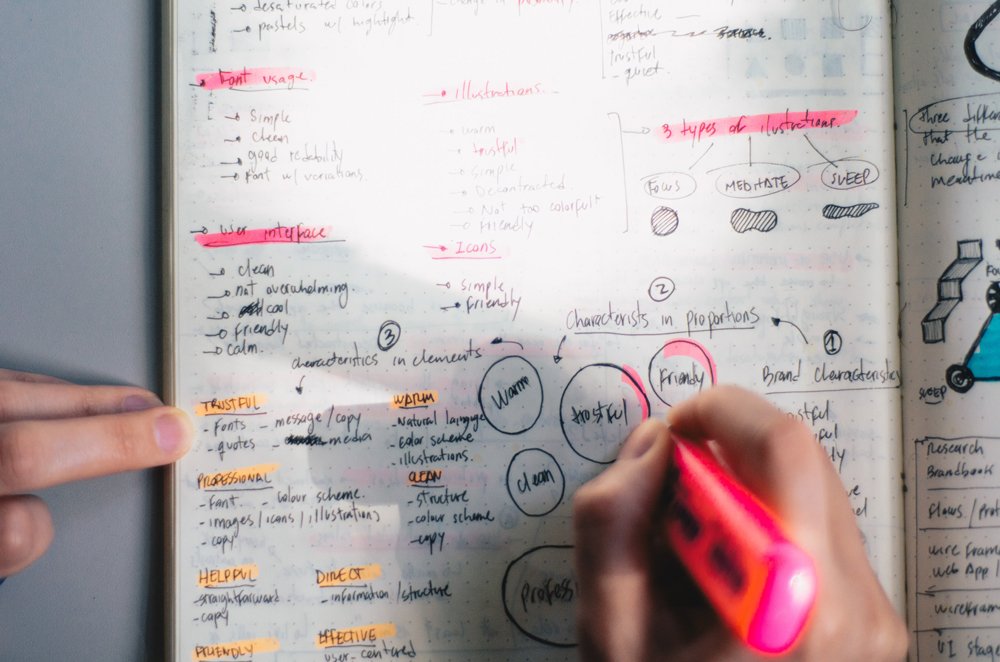 desaturated colors
pastels w/ hightlight.
change in
Effective
trustful
- quiet.
Font usage
Simple
clean
good redability
Font w/ variations.
illustrations.
warm
trustful
simple
Decontracted.
Not too colorful
Friendly
3 types of ilustrations.
FOCUS MEDITATE SLEEP
user interface
clean
not overwhelming.
cool
Friendly
calm.
Icons
simple
Friendly
2
Characterists in proportions
1
Brand Characteristics
3
characteristics in elements
Warm
trustful
Friendly
clean
profess
TRUSTFUL
- Fonts
- quotes
- message / copy
- media
WARM
- Natural language
- color scheme
- illustrations.
PROFESSIONAL
- Font.
- colour scheme.
- images / icons / illustrations
- copy
CLEAN
- structure
- colour scheme
- copy
HELPFUL
- straightforward
- copy
DIRECT
- information / structure
FRIENDLY
EFFECTIVE
user-centered
three
that the
change
meantime
SLEEP
Research
Brandbook
Flows /
wire fram
web App /
wirefram
UI stage